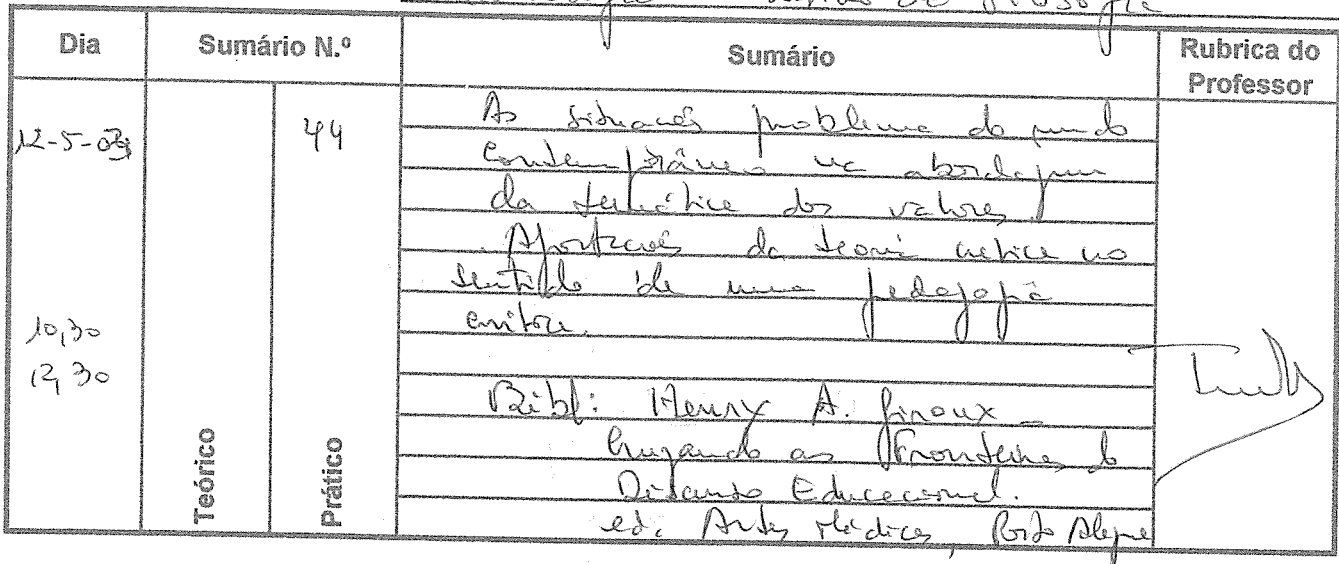 de filosofia
Dia Sumário N.º Sumário Rubrica do Professor
12-5-03 44 As situações problema do mundo
contemporâneo na abordagem
da temática dos valores.
. Aportações da teoria crítica no
sentido de uma pedagogia
crítica.
10,30
12,30
Bibl: Henry A. Giroux -
Cruzando as Fronteiras do
Discurso Educacional.
ed. Artes Médicas, Porto Alegre
Teórico
Prático